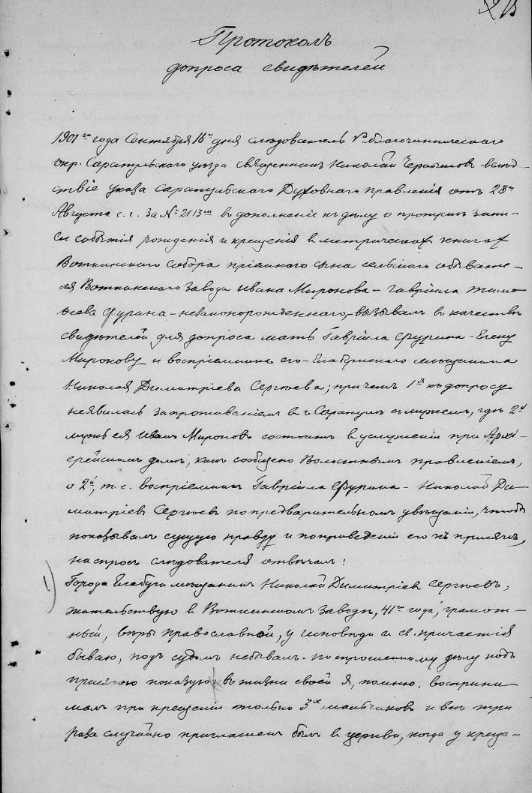 Протоколъ
допроса свидѣтелей
1901го года Сентября 16го дня слѣдователь благочинническаго
окр. Сарапульскаго уѣзда священникъ Николай вслѣд-
ствіе указа Сарапульскаго Духовнаго Правленія отъ 28го
Августа с. г. за № 2113мъ въ дополненіе къ дѣлу о пропускѣ запи-
си событія рожденія и крещенія въ метрическихъ книгахъ
Воткинскаго собора пріемнаго сына сельскаго обывате-
ля Воткинскаго завода Ивана Миронова - Гавріила
Фурина - незаконорожденнаго - вызывалъ въ качествѣ
свидѣтелей, для допроса мать Гавріила Фурина - Елену
Миронову и воспріемника его - Елабужскаго мѣщанина
Николая Димитріева Сергѣева; при чемъ 1я къ допросу
неявилась за проживаніемъ въ г. Сарапулѣ съ мужемъ, гдѣ 2й
мужъ ея Иванъ Мироновъ состоитъ въ услуженіи при Архі-
ерейскомъ домѣ, какъ сообщено Волостнымъ правленіемъ,
а 2й, т. е. воспріемникъ Гавріила Фурина - Николай Ди-
митріевъ Сергѣевъ по предварительномъ увѣщаніи, чтобъ
показывалъ сущую правду и по приведеніи его къ присягѣ,
на спросъ слѣдователя отвѣчалъ:
1) Города Елабуги мѣщанинъ Николай Димитріевъ Сергѣевъ,
жительствую въ Воткинскомъ заводѣ, 41го года, грамот-
ный, вѣры православной, у исповѣди и св. причастія
бываю, подъ судомъ небывалъ. По спрошенному дѣлу подъ
присягою показую: въ жизни своей я, помню, восприни-
малъ при крещеніи только 3хъ мальчиковъ и всѣ три
раза случайно приглашенъ былъ въ церкви, когда у креща-